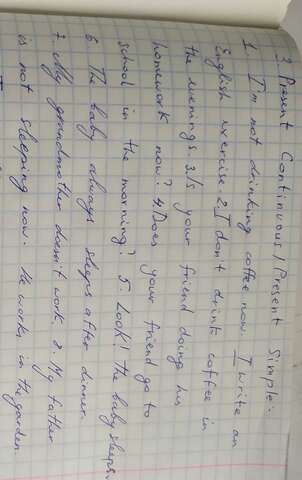 3 Present Continuous / Present Simple.
1 I'm not drinking coffee now. I write an
English exercise 2. I don't drink coffee in
the evenings. 3. Is your friend doing his
homework now? 4. Does your friend go to
school in the morning? 5. Look! The baby sleeps.
6 The baby always sleeps after dinner.
7. My grandmother doesn't work 8. My father
is not sleeping now. He works in the garden